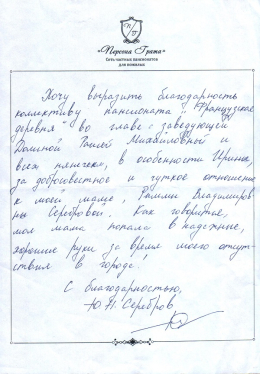 «Персона Грата»
Сеть частных пансионатов
для пожилых
Хочу выразить благодарность
коллективу пансионата "Французская
деревня" во главе с заведующей
Раисой Михайловной и
всех нянечек, в особенности Ирине,
за добросовестное и чуткое отношение
к моей маме, Владимиров-
ны Серебровой. Как говорится,
моя мама попала в надежные,
хорошие руки за время моего отсут-
ствия в городе!
С благодарностью,
Ю.Н. Серебров